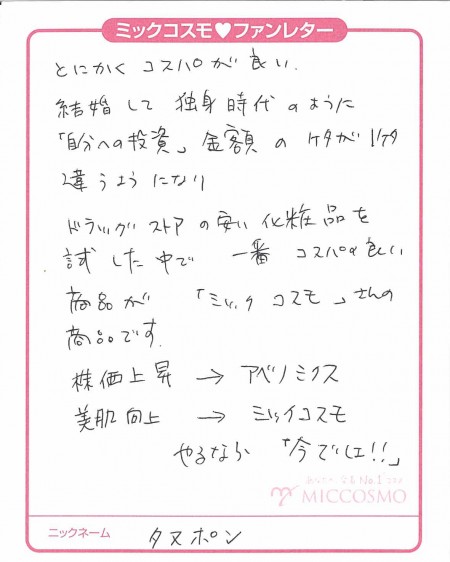 ミックコスモ♥ファンレター
とにかく コスパが良い.
結婚して 独身時代のように
「自分への投資」金額の ケタが1ケタ
違うようになり
ドラッグストアの安い化粧品を
試した中で 一番 コスパの良い
商品が 「ミック コスモ」さんの
商品です.
株価上昇 → アベノミクス
美肌向上 → ミッイコスモ
やるなら 「今でしょ!!」
MICCOSMO
ニックネーム
タヌポン